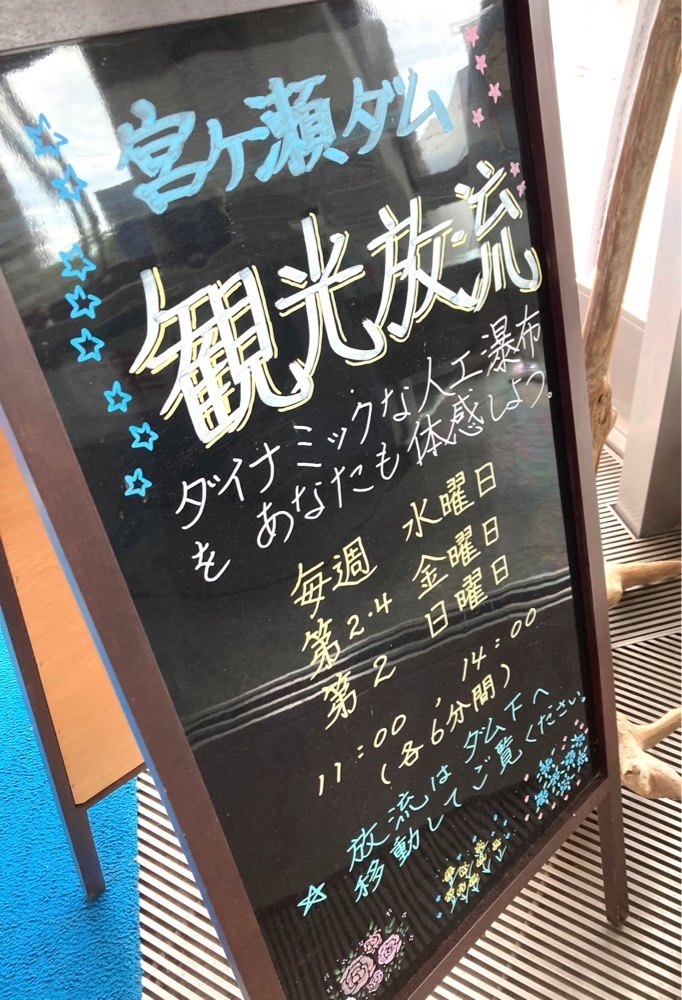 宮ケ瀬ダム
観光放流
ダイナミックな人工瀑布
を あなたも体感しよう。
毎週 水曜日
第2・4 金曜日
第2 日曜日
11:00 , 14:00
(各6分間)
☆ 放流は ダム下へ
移動してご覧ください。